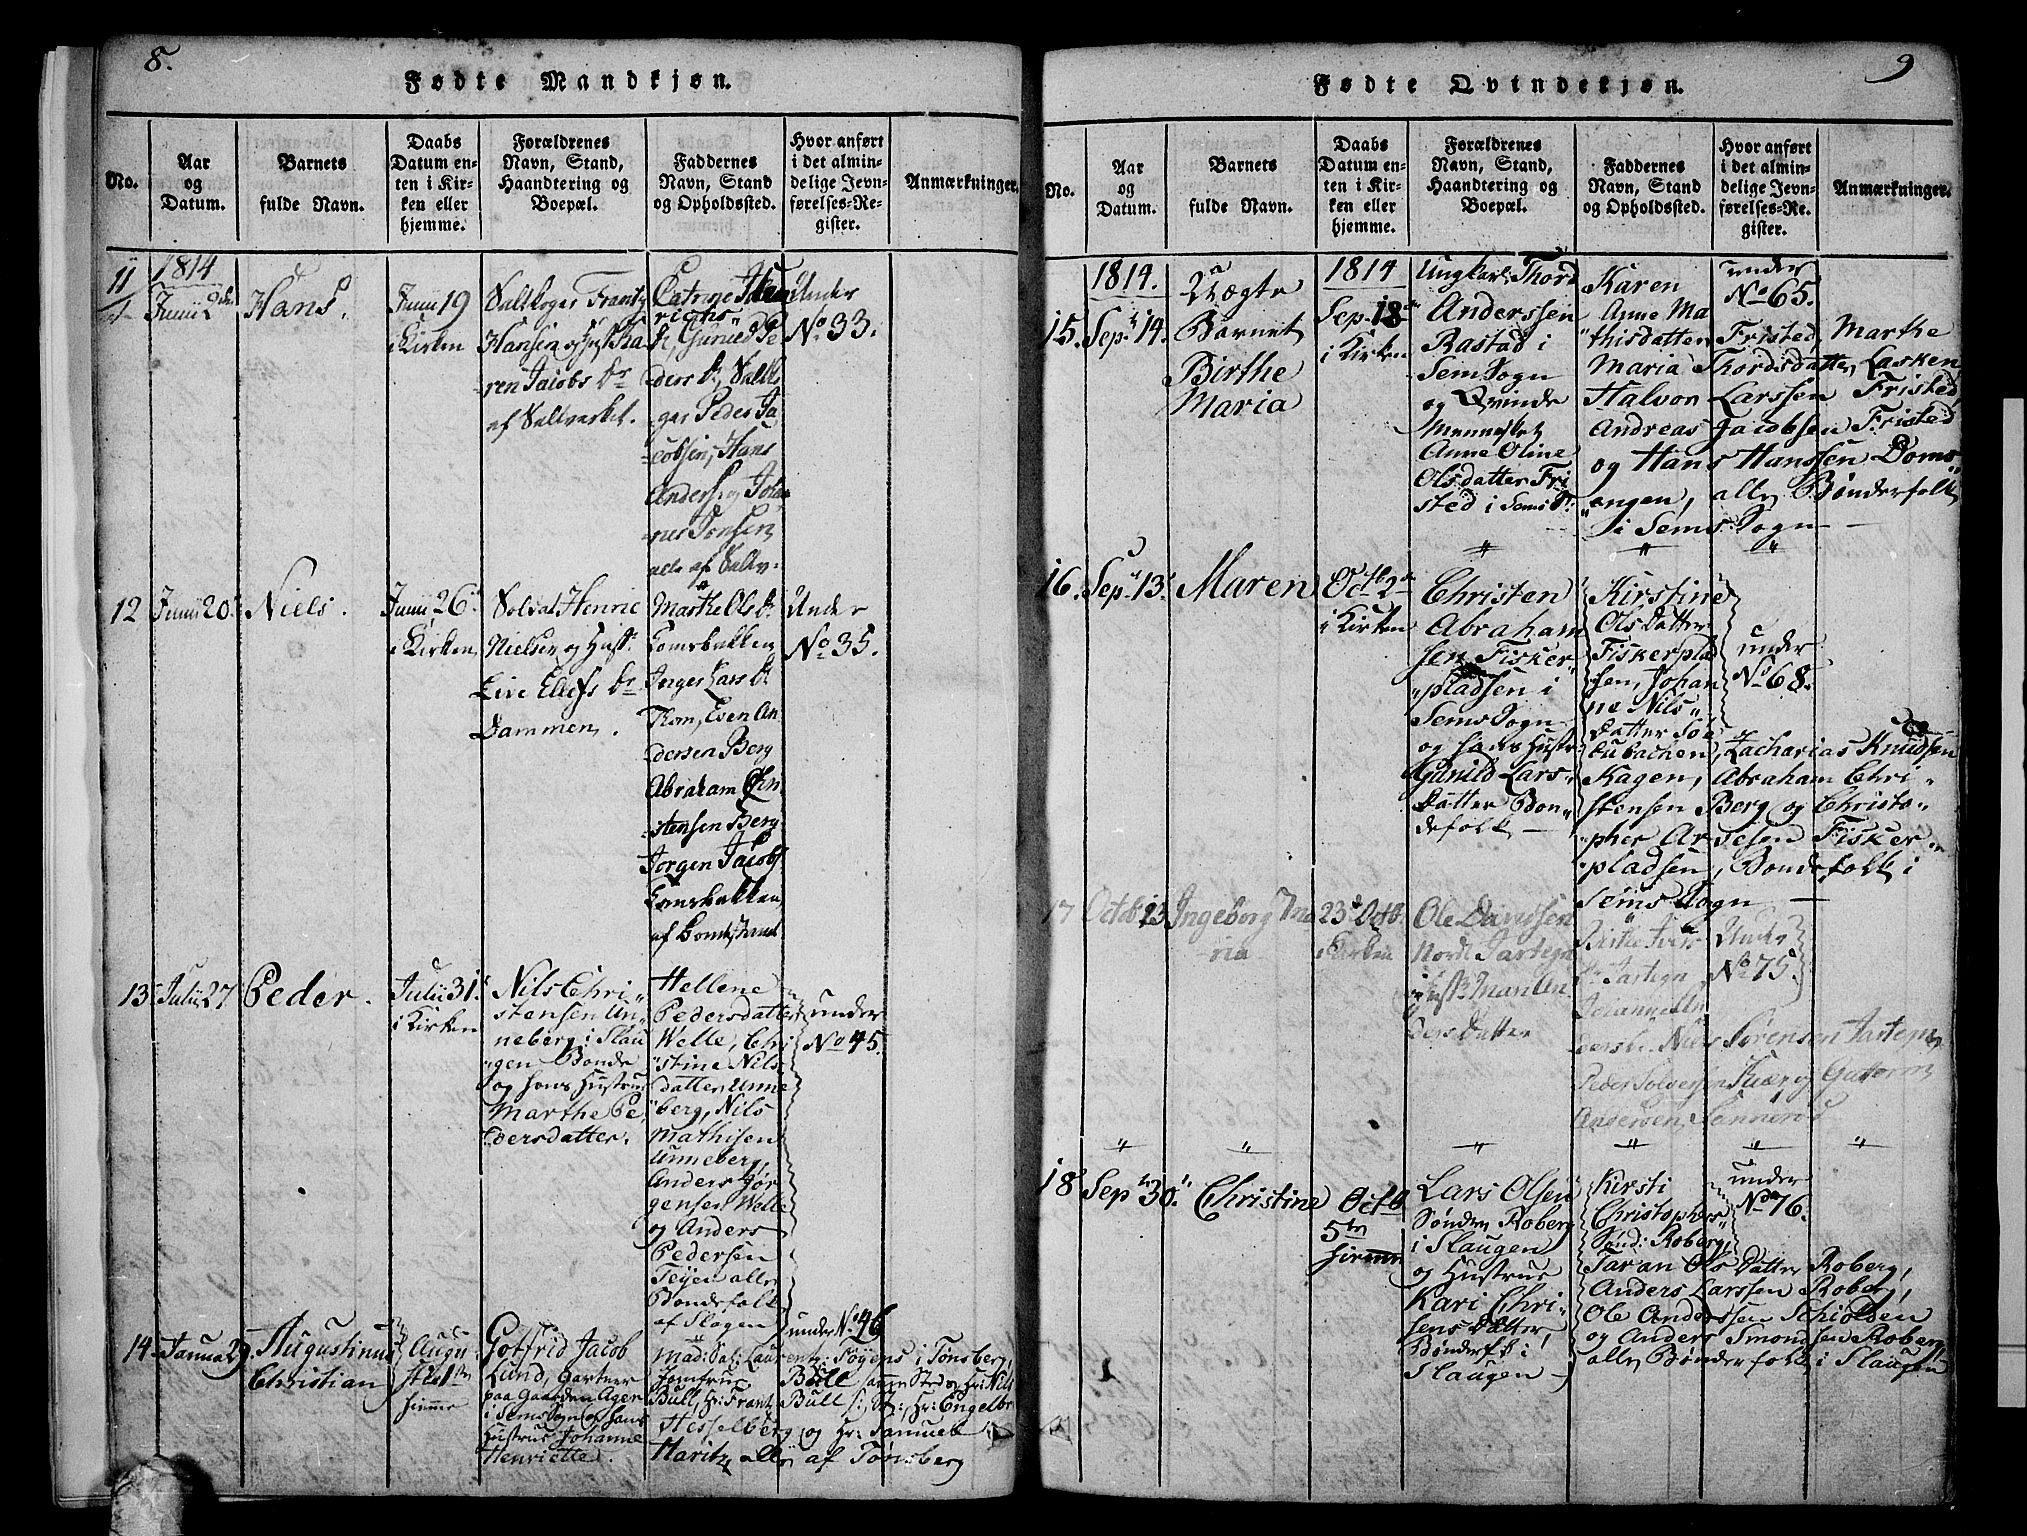 8.
Fødte Mandkjøn.
No.
Aar
og
Datum.
Barnets
fulde Navn.
Daabs
Datum en-
ten i Kir-
ken eller
hjemme.
Forældrenes
Navn, Stand,
Haandtering og
Boepæl.
Faddernes
Navn, Stand
og Opholdssted.
Hvor anført
i det almin-
delige Jevn-
førelses-Re-
gister.
Anmærkninger.
11
1814
Junii 2den
Hans.
Junii 19
i Kirken
Saltkoger Frantz
Hansen og Hust Ka
ren Jacobs dr
af Saltverket.
Catrine Hen
richs
dr, Guneld Pe
ders dr, Saltko
ger Peder Ja
cobsen, Hans
Anders. og Joha
nes Jonsen
alle af Saltv.
Under
No 33.
12
Junii 20.
Niels.
Junii 26
i Kirken
Soldat Henric
Nielsen og Hust.
Live Ellefs dr
Dammen.
Marthe Ols dr
Lomsbakken
Inger Lars dr
Thom, Even An
dersen Berg
Abraham Chri
stensen Berg
Jørgen Jacobs
Lomsbakken
Under
No 35.
13
Julii 27
Peder.
Julii 31.
i Kirken
Nils Chri
stensen Un
neberg i Slau
gen Bonde
og hans Hustrue
Marthe Pe
dersdatter.
Hellene
Pedersdatter
Welle, Chri
stine Nils
datter Unne
berg, Nils
Mathisen
Unneberg,
Anders Jør
gensen Welle
og Anders
Pedersen
Teyen alle
Bondefolk
af Slagen
under
No 45.
14
Janua 29.
Augustinus
Christian
Augu
sti 1ste
hjemme
Gotfrid Jacob
Lund, Gartner
paa Gaarden Ager
i Sems Sogn og hans
Hustrue Johanne
Henriette.
under No 46
Mad: Sal: Laurentz: Føyens i Tønsberg,
Jomfrue Bull samme Sted og Hr: Nils
Bull, Hr: Frantz Bull s: St:, Hr: Engelbr
Hesselberg og Hr: Samuel
Haritz, alle af Tønsberg
9
Fødte Qvindekjøn.
No.
Aar
og
Datum.
Barnets
fulde Navn.
Daabs
Datum en-
ten i Kir-
ken eller
hjemme.
Forældrenes
Navn, Stand,
Haandtering og
Boepæl.
Faddernes
Navn, Stand
og Opholdssted.
Hvor anført
i det almin-
delige Jevn-
førelses-Re-
gister.
Anmærkninger.
1814.
15.
Sept 14.
Uægte
Barnet
Birthe
Maria
1814
Sep. 18de
i Kirken
Ungkarl Thord
Anderssen
Rastad i
Sems Sogn
og Qvinde
Mennesket
Anne Oline
Olsdatter Fri
sted i Sems S:
under
No 65.
Karen
Anne Ma
thisdatter Fristed, Marthe
Maria Thordsdatter Lasken
Halvor Larssen Fristed,
Andreas Jacobsen Fristed
og Hans Hanssen Doms
angen, alle Bønderfolk
i Sems Sogn
16.
Sept 13.
Maren
Octb 2den
i Kirken
Christen
Abraham
sen Fisker
pladsen i
Sems Sogn
og hans Hustr
Gunild Lars
Datter Bon
defolk
Kirstine
Ols Datter
Fiskerplad
sen, Johan
ne Nils
Datter
under
No 68.
Zacharias Knudsen
Hagen, Abraham Chri
stensen Berg og Christo
pher Arvesen Fisker
pladsen, Bondefolk i
Sems Sogn
17
Octob 13
Ingeborg Ma
ria
23de Octb.
i Kirken
Ole Davidsen
Nordr Jartegn
og Hust Mari An
ders Datter
Birthe Ivers
dr Jartegn
Johanne An
dersdr. Nils Sørensen Jartegn
Peder Solvessen Kiær og Guttorm
Andersen Sannerød
Under
No 75.
18
Sept 30.
Christine
Octb
5te
hjemme
Lars Olsen
Søndre Roberg
i Slaugen
og Hustrue
Kari Chri
sens Datter,
Bønderfolk i
Slaugen
under
No 76.
Kirsti
Christophers
Sønd: Roberg,
Taran Ols Datter Roberg,
Anders Larssen Roberg,
Ole Anderssen Schiolsen
og Anders Simonssen Roberg
alle Bønderfolk i Slaugen